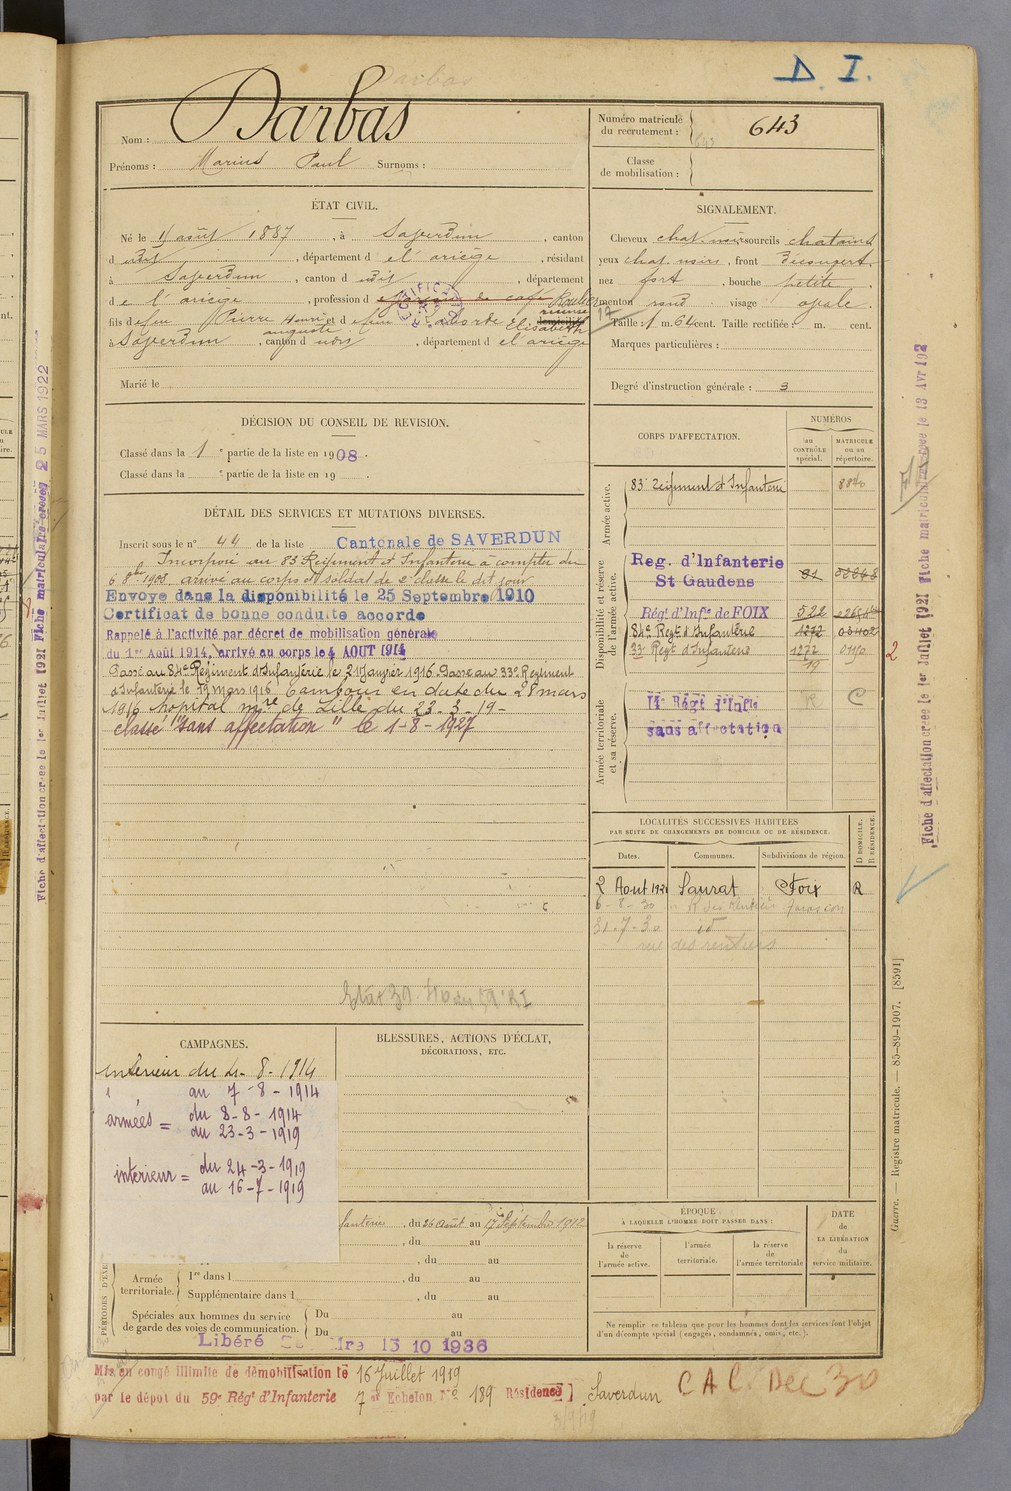 D. I.
Darbas
Nom : Darbas
Prénoms : Marius Paul Surnoms :
Numéro matricule du recrutement : 643
Classe de mobilisation :
ÉTAT CIVIL.
Né le 11 août 1887, à Saverdun, canton
d udit, département d e l'ariège, résidant
à Saverdun, canton d udit, département
d e l'ariège, profession d e garçon de café Roulier
fils de feu Pierre Henri auguste et d e feu Laborde Elisabeth
à Saverdun, canton d udit, département d e l'ariège
Marié le
SIGNALEMENT.
Cheveux chat. noirs sourcils chatains
yeux chat. noirs, front découvert
nez fort, bouche petite
menton rond visage ovale
Taille : 1 m. 64 cent. Taille rectifiée : m. cent.
Marques particulières :
Degré d'instruction générale : 3
DÉCISION DU CONSEIL DE REVISION.
Classé dans la 1 e partie de la liste en 1908.
Classé dans la e partie de la liste en 19 .
DÉTAIL DES SERVICES ET MUTATIONS DIVERSES.
Inscrit sous le n° 44 de la liste Cantonale de SAVERDUN
Incorporé au 83 Régiment d'Infanterie à compter du
6 8bre 1908. arrivé au corps et soldat de 2e classe le dit jour
Envoyé dans la disponibilité le 25 Septembre 1910
Certificat de bonne conduite accordé
Rappelé à l'activité par décret de mobilisation générale
du 1er Août 1914, arrivé au corps le 4 AOUT 1914
Passé au 84e Régiment d'Infanterie le 21 Janvier 1916. Passé au 33e Régiment
d'Infanterie le 19 mars 1916 Tambour en date du 28 mars
1916 hopital mre de Lille du 23-3-19-
classé "sans affectation" le 1-8-1927
CORPS D'AFFECTATION.
NUMÉROS
au CONTRÔLE spécial.
MATRICULE ou au répertoire.
Armée active.
83e Régiment d'Infanterie 8840
Disponibilité et réserve de l'armée active.
Reg. d'Infanterie
St Gaudens
Rég. d'Infie de FOIX 522
84e Regt d'Infanterie 1272
33e Regt d'Infanterie 1272
Armée territoriale et sa réserve.
14e Régt d'Infie
sans affectation
LOCALITÉS SUCCESSIVES HABITÉES
PAR SUITE DE CHANGEMENTS DE DOMICILE OU DE RÉSIDENCE.
Dates. Communes. Subdivisions de région. D DOMICILE. R RÉSIDENCE.
2 Aout 1921 Saurat Foix R
6-8-30 R des Rentiers Tarascon
31-7-30 id
rue des rentiers
CAMPAGNES.
intérieur du 4-8-1914
au 7-8-1914
armées = du 8-8-1914
au 23-3-1919
intérieur = du 24-3-1919
au 16-7-1919
BLESSURES, ACTIONS D'ÉCLAT,
DÉCORATIONS, ETC.
fanterie, du 26 Août au 17 Septembre 1912
, du au
, du au
Armée territoriale. 1re dans l , du au
Supplémentaire dans l , du au
Spéciales aux hommes du service de garde des voies de communication. Du au
Du au
Libéré 13 10 1936
ÉPOQUE
À LAQUELLE L'HOMME DOIT PASSER DANS :
la réserve de l'armée active.
l'armée territoriale.
la réserve de l'armée territoriale
DATE de LA LIBÉRATION du service militaire.
Ne remplir ce tableau que pour les hommes dont les services font l'objet
d'un décompte spécial (engagés, condamnés, omis, etc.).
Mis en congé illimité de démobilisation le 16 Juillet 1919
par le dépôt du 59e Régt d'Infanterie 7e Echelon N° 189 Résidence Saverdun
CAC Dec 30
Guerre. — Registre matricule. — 85-89-1907. [8591]
Fiche d'affectation créée le 1er Juillet 1921 Fiche matriculaire créée le 25 MARS 1922